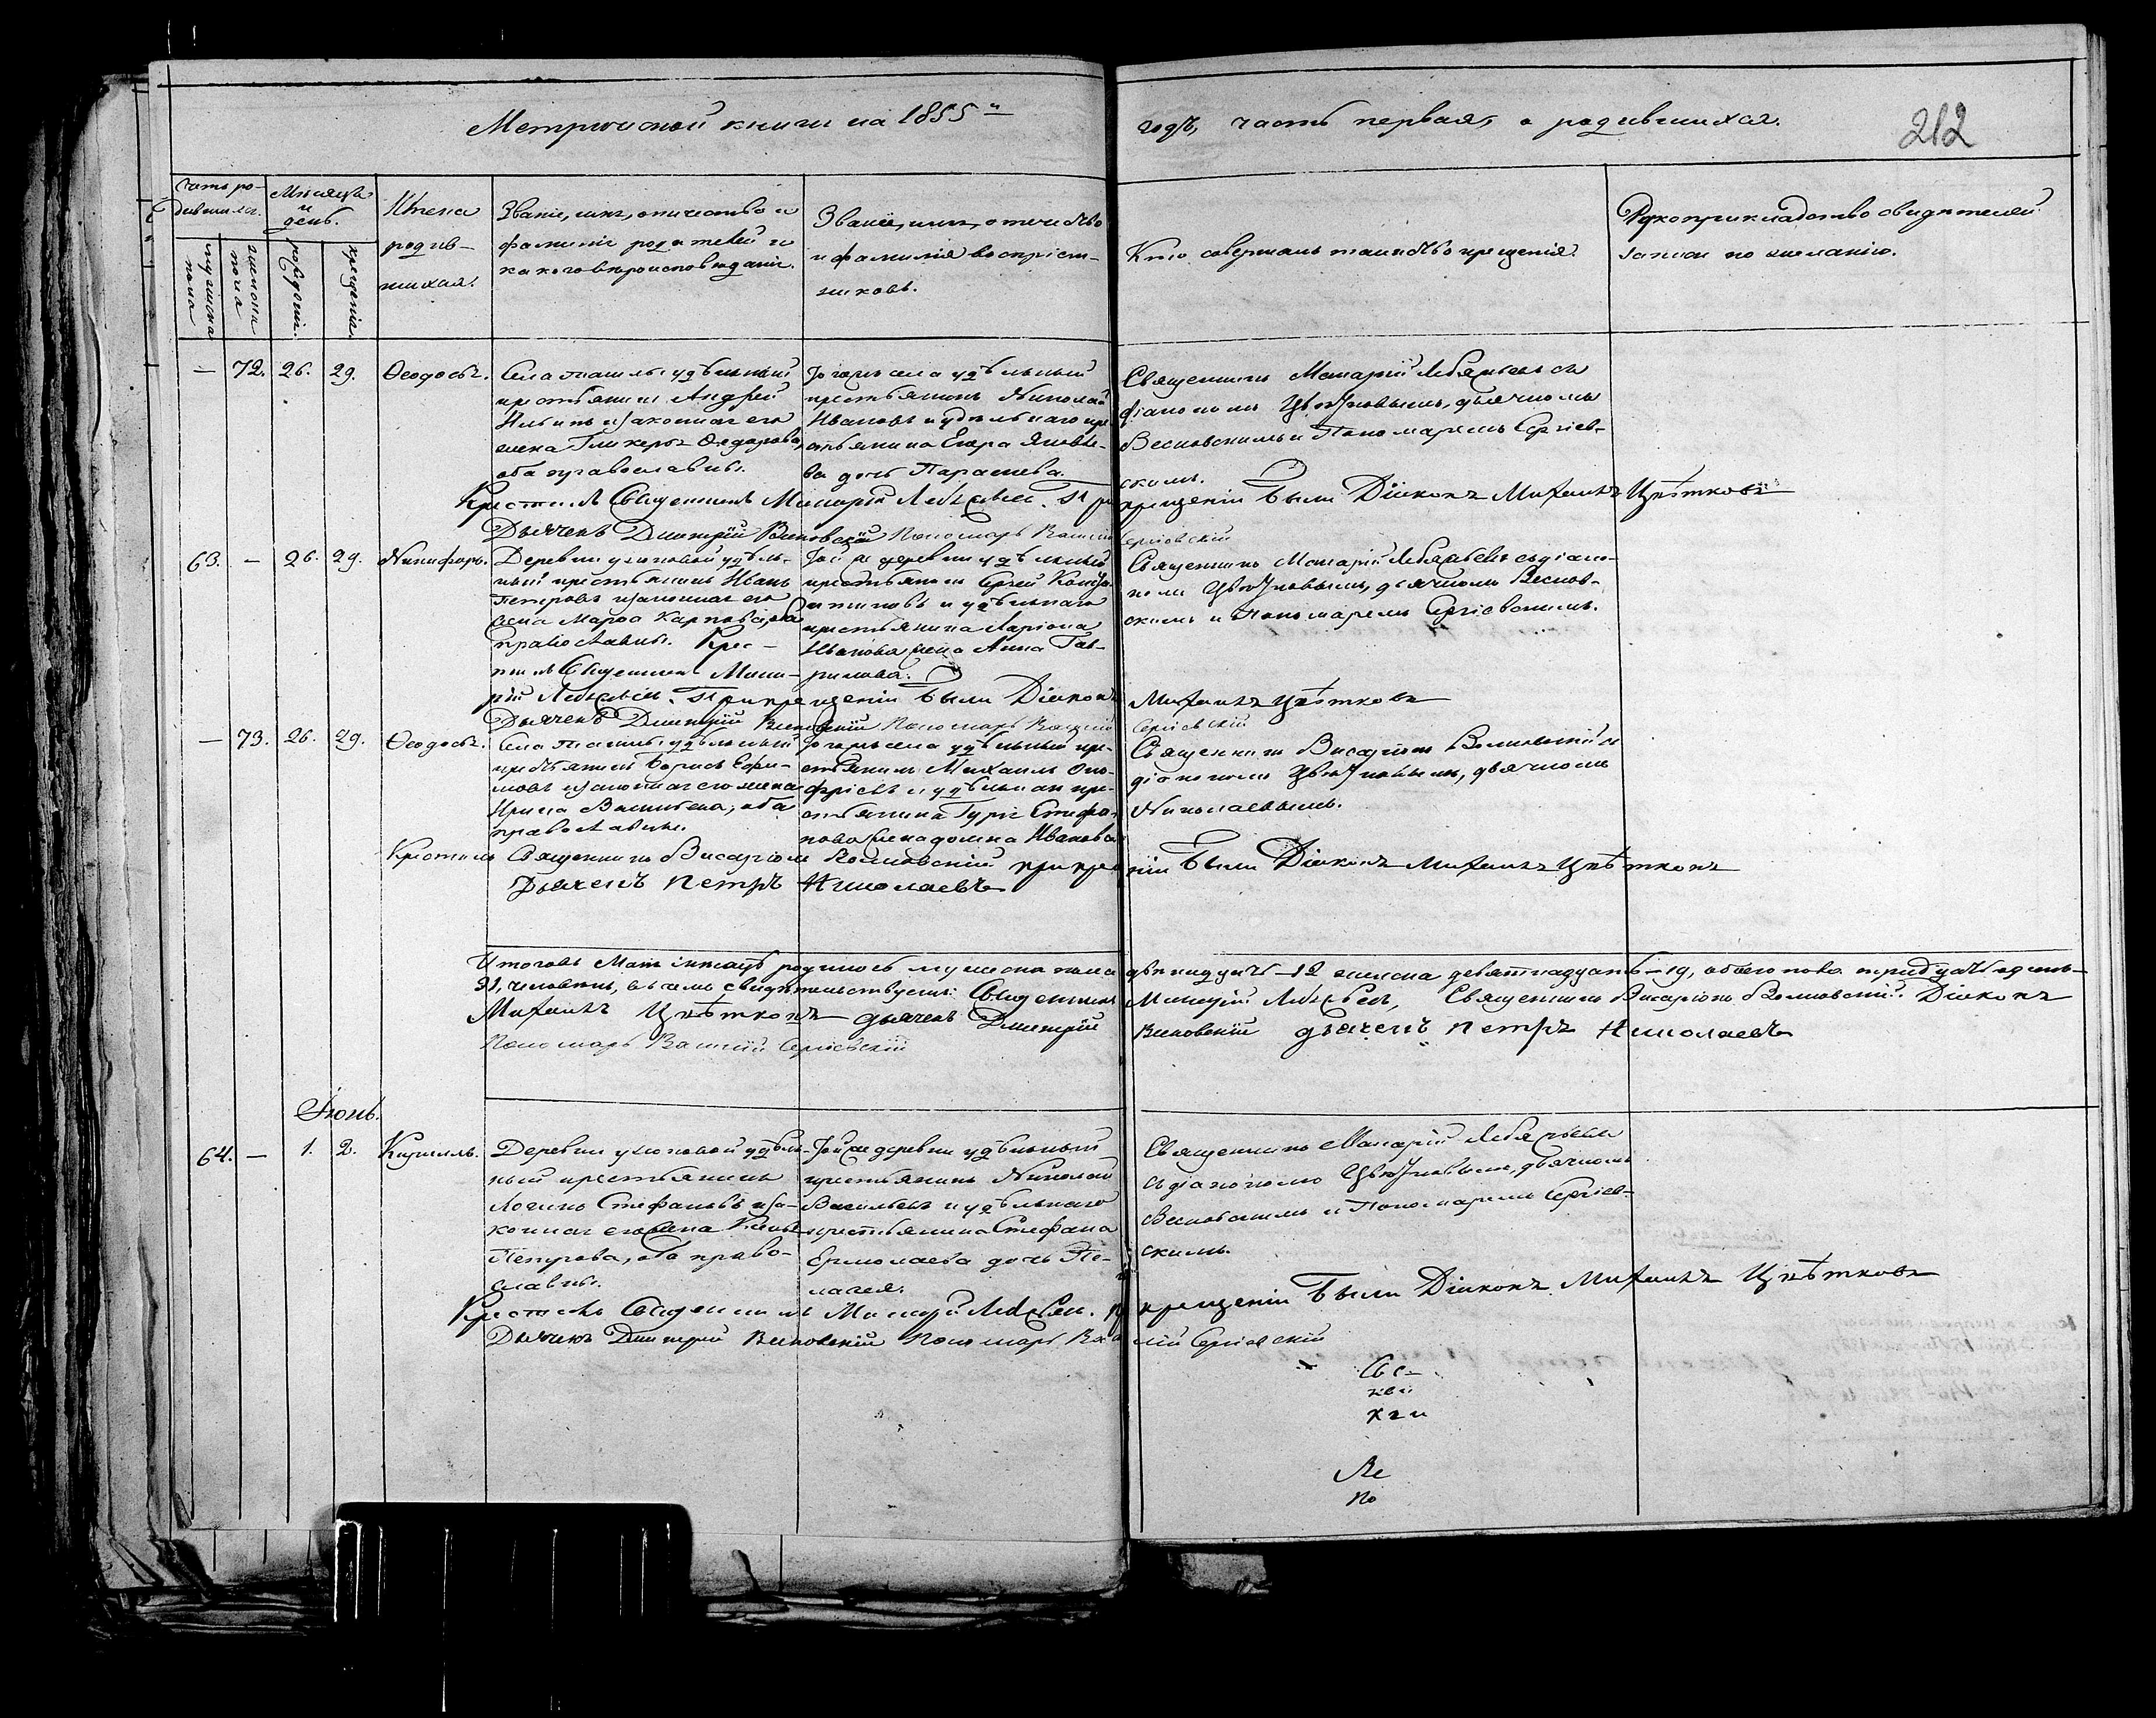 Метрической книги на 1855й
годъ, часть первая, о родившихся.
212
Счетъ ро-
дившихся.
мужеска
пола
женска
пола
Мѣсяцъ
и
день.
рожденія.
крещенія.
Имена
родив-
шихся.
Званіе, имя, отчество и
фамилія родителей и
какого вѣроисповѣданія.
Званіе, имя, отчество
и фамилія воспріем-
никовъ.
Кто совершалъ таинство крещенія.
Рукоприкладство свидѣтелей
записи по желанію.
— 72. 26. 29. Ѳеодосія.
Села Ташлы удѣльный
крестьянинъ Андрей
Ильинъ и законная его
жена Гликерія Ѳедорова,
оба православные.
Того же села удѣльный
крестьянинъ Николай
Ивановъ и удѣльнаго кре-
стьянина Егора Яковле-
ва дочь Параскева.
Священникъ Макарій Лебяжьевъ съ
діакономъ Цвѣтковымъ, дьячкомъ
Весновскимъ и Пономаремъ Сергіев-
скимъ.
Крестилъ Священникъ Макарій Лебяжьевъ. При крещеніи были Діаконъ Михаилъ Цвѣтковъ
Дьячекъ Дмитрій Весновскій Пономарь Василій Сергіевскій
63. — 26. 29. Никифоръ.
Деревни узюковой удѣль-
ный крестьянинъ Иванъ
Петровъ и законная его
жена Марѳа Карпова, оба
православные.
Той же деревни удѣльный
крестьянинъ Сергей Конста-
нтиновъ и удѣльнаго
крестьянина Ларіона
Иванова жена Анна Гав-
рилова.
Священникъ Макарій Лебяжьевъ съ діако-
номъ Цвѣтковымъ, дьячкомъ Веснов-
скимъ и Пономаремъ Сергіевскимъ.
Крес-
тилъ Священникъ Мака-
рій Лебяжьевъ. При крещеніи были Діаконъ Михаилъ Цвѣтковъ
Дьячекъ Дмитрій Весновскій Пономарь Василій Сергіевскій
— 73. 26. 29. Ѳеодосія.
Села Ташлы, удѣльный
крестьянинъ Борисъ Ефи-
мовъ и законная его жена
Ирина Васильева, оба
православные.
Того же села удѣльный кре-
стьянинъ Михаилъ Ону-
фріевъ и удѣльнаго кре-
стьянина Гурія Стефа-
нова жена Домна Иванова
Священникъ Висаріонъ Волковскій съ
діакономъ Цвѣтковымъ, дьячкомъ
Николаевымъ.
Крестилъ Священникъ Висаріонъ Волковскій при креще-
ніи были Діаконъ Михаилъ Цвѣтковъ
Дьячекъ Петръ Николаевъ
Итого въ Маѣ мѣсяцѣ родилось мужеска пола двѣнадцать — 12 женска девятнадцать — 19, обоего пола тридцать одинъ —
31, человѣкъ, въ чемъ свидѣтельствуемъ: Священникъ Макарій Лебяжьевъ, Священникъ Висаріонъ Волковскій. Діаконъ
Михаилъ Цвѣтковъ дьячекъ Дмитрій Весновскій дьячекъ Петръ Николаевъ
Пономарь Василій Сергіевскій
Іюнь.
64. — 1. 2. Кириллъ.
Деревни узюковой удѣль-
ный крестьянинъ
Логинъ Стефановъ и за-
конная его жена
Петрова, оба право-
славные.
Той же деревни удѣльный
крестьянинъ Николай
Васильевъ и удѣльнаго
крестьянина Стефана
Ермолаева дочь Пе-
лагея.
Священникъ Макарій Лебяжьевъ
съ діакономъ Цвѣтковымъ, дьячкомъ
Весновскимъ и Пономаремъ Сергіев-
скимъ.
Крестилъ Священникъ Макарій Лебяжьевъ. При крещеніи были Діаконъ Михаилъ Цвѣтковъ
Дьячекъ Дмитрій Весновскій Пономарь Василій Сергіевскій